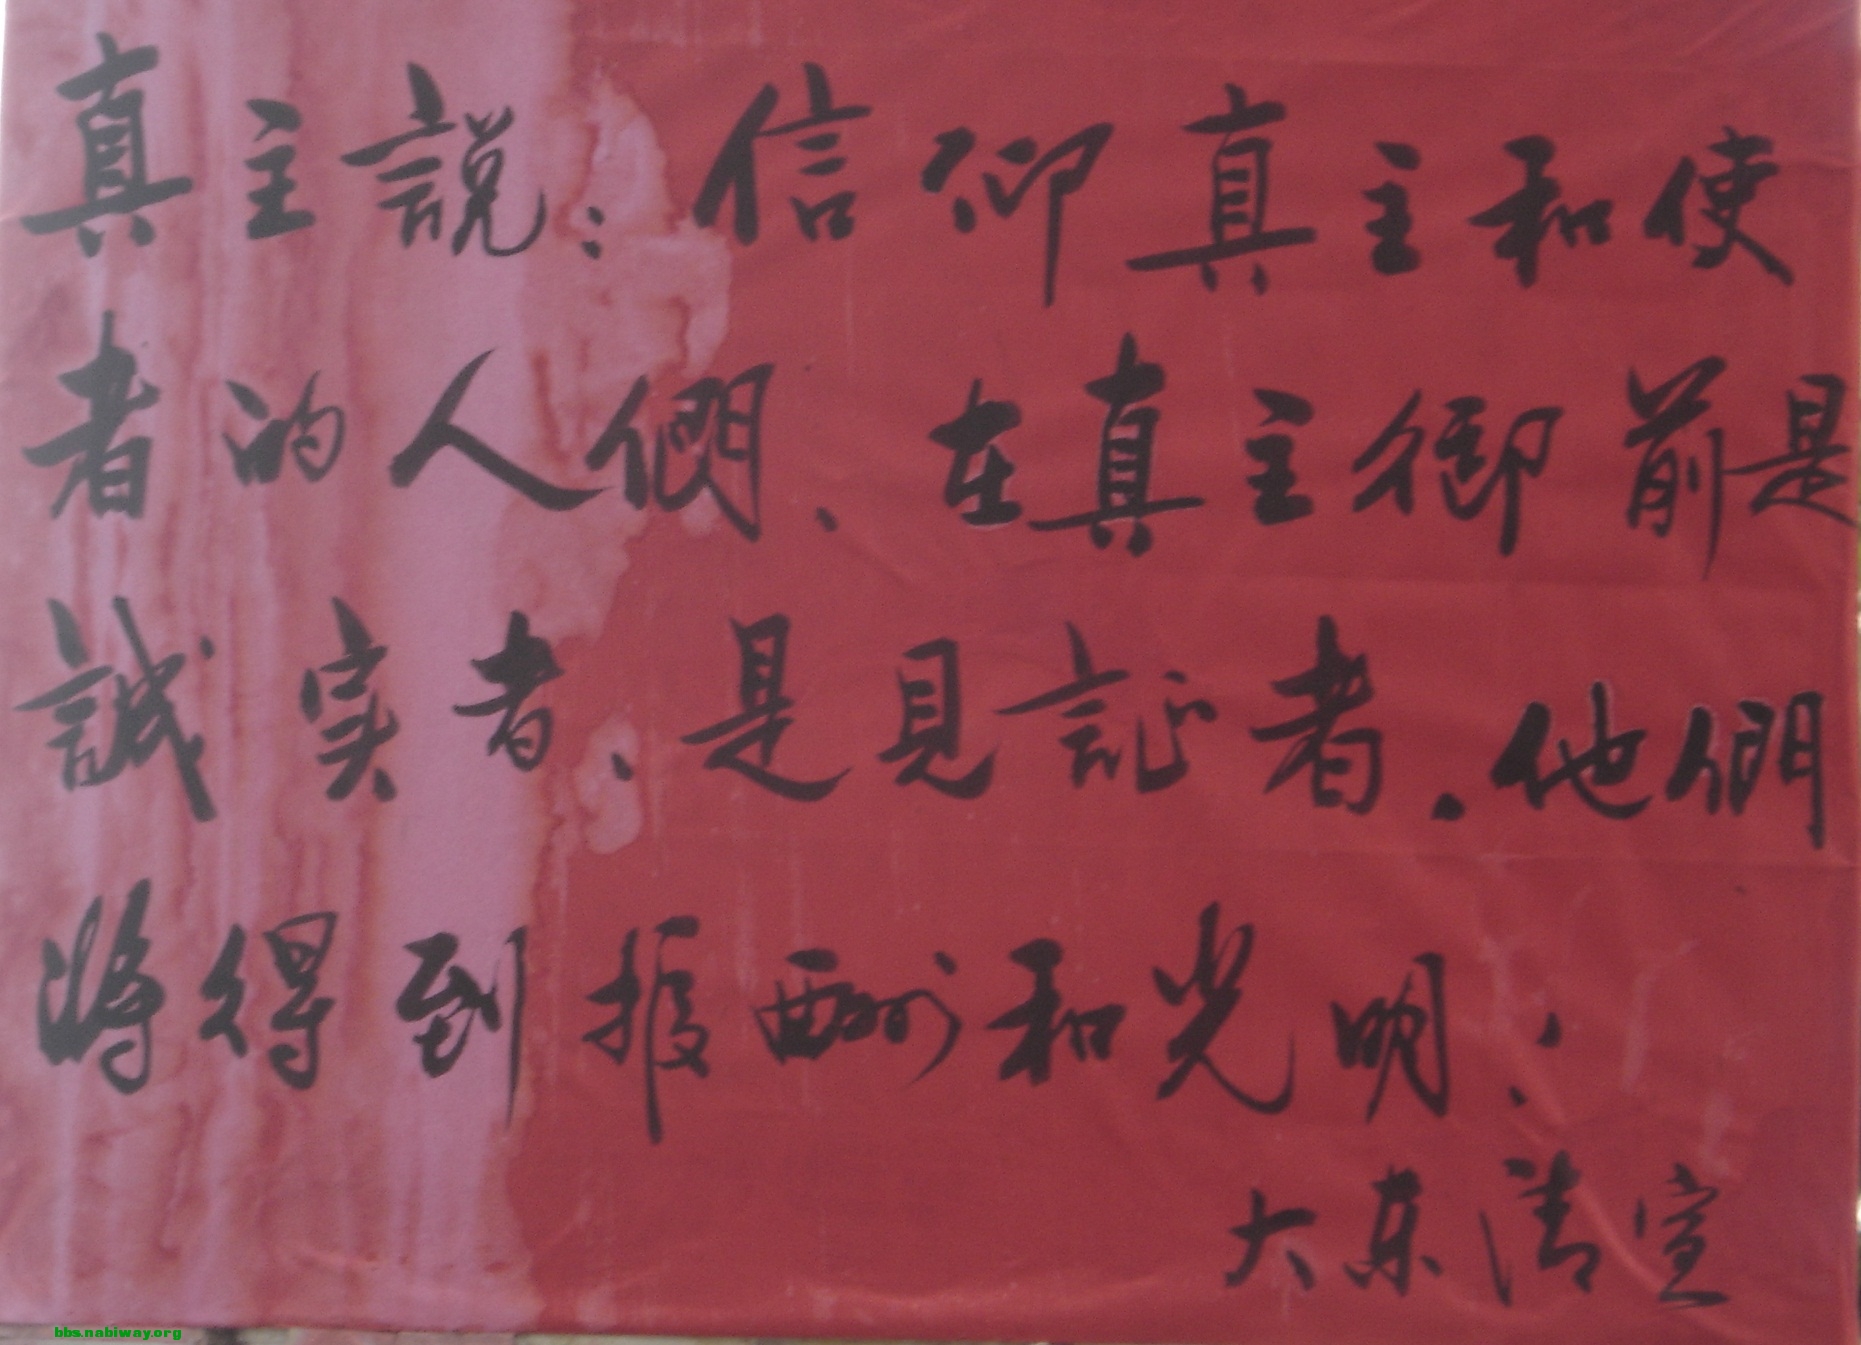 真主説：信仰真主和使
者的人們、在真主御前是
誠实者、是見証者．他們
将得到报酬和光明；
大东清宣
bbs.nabiway.org